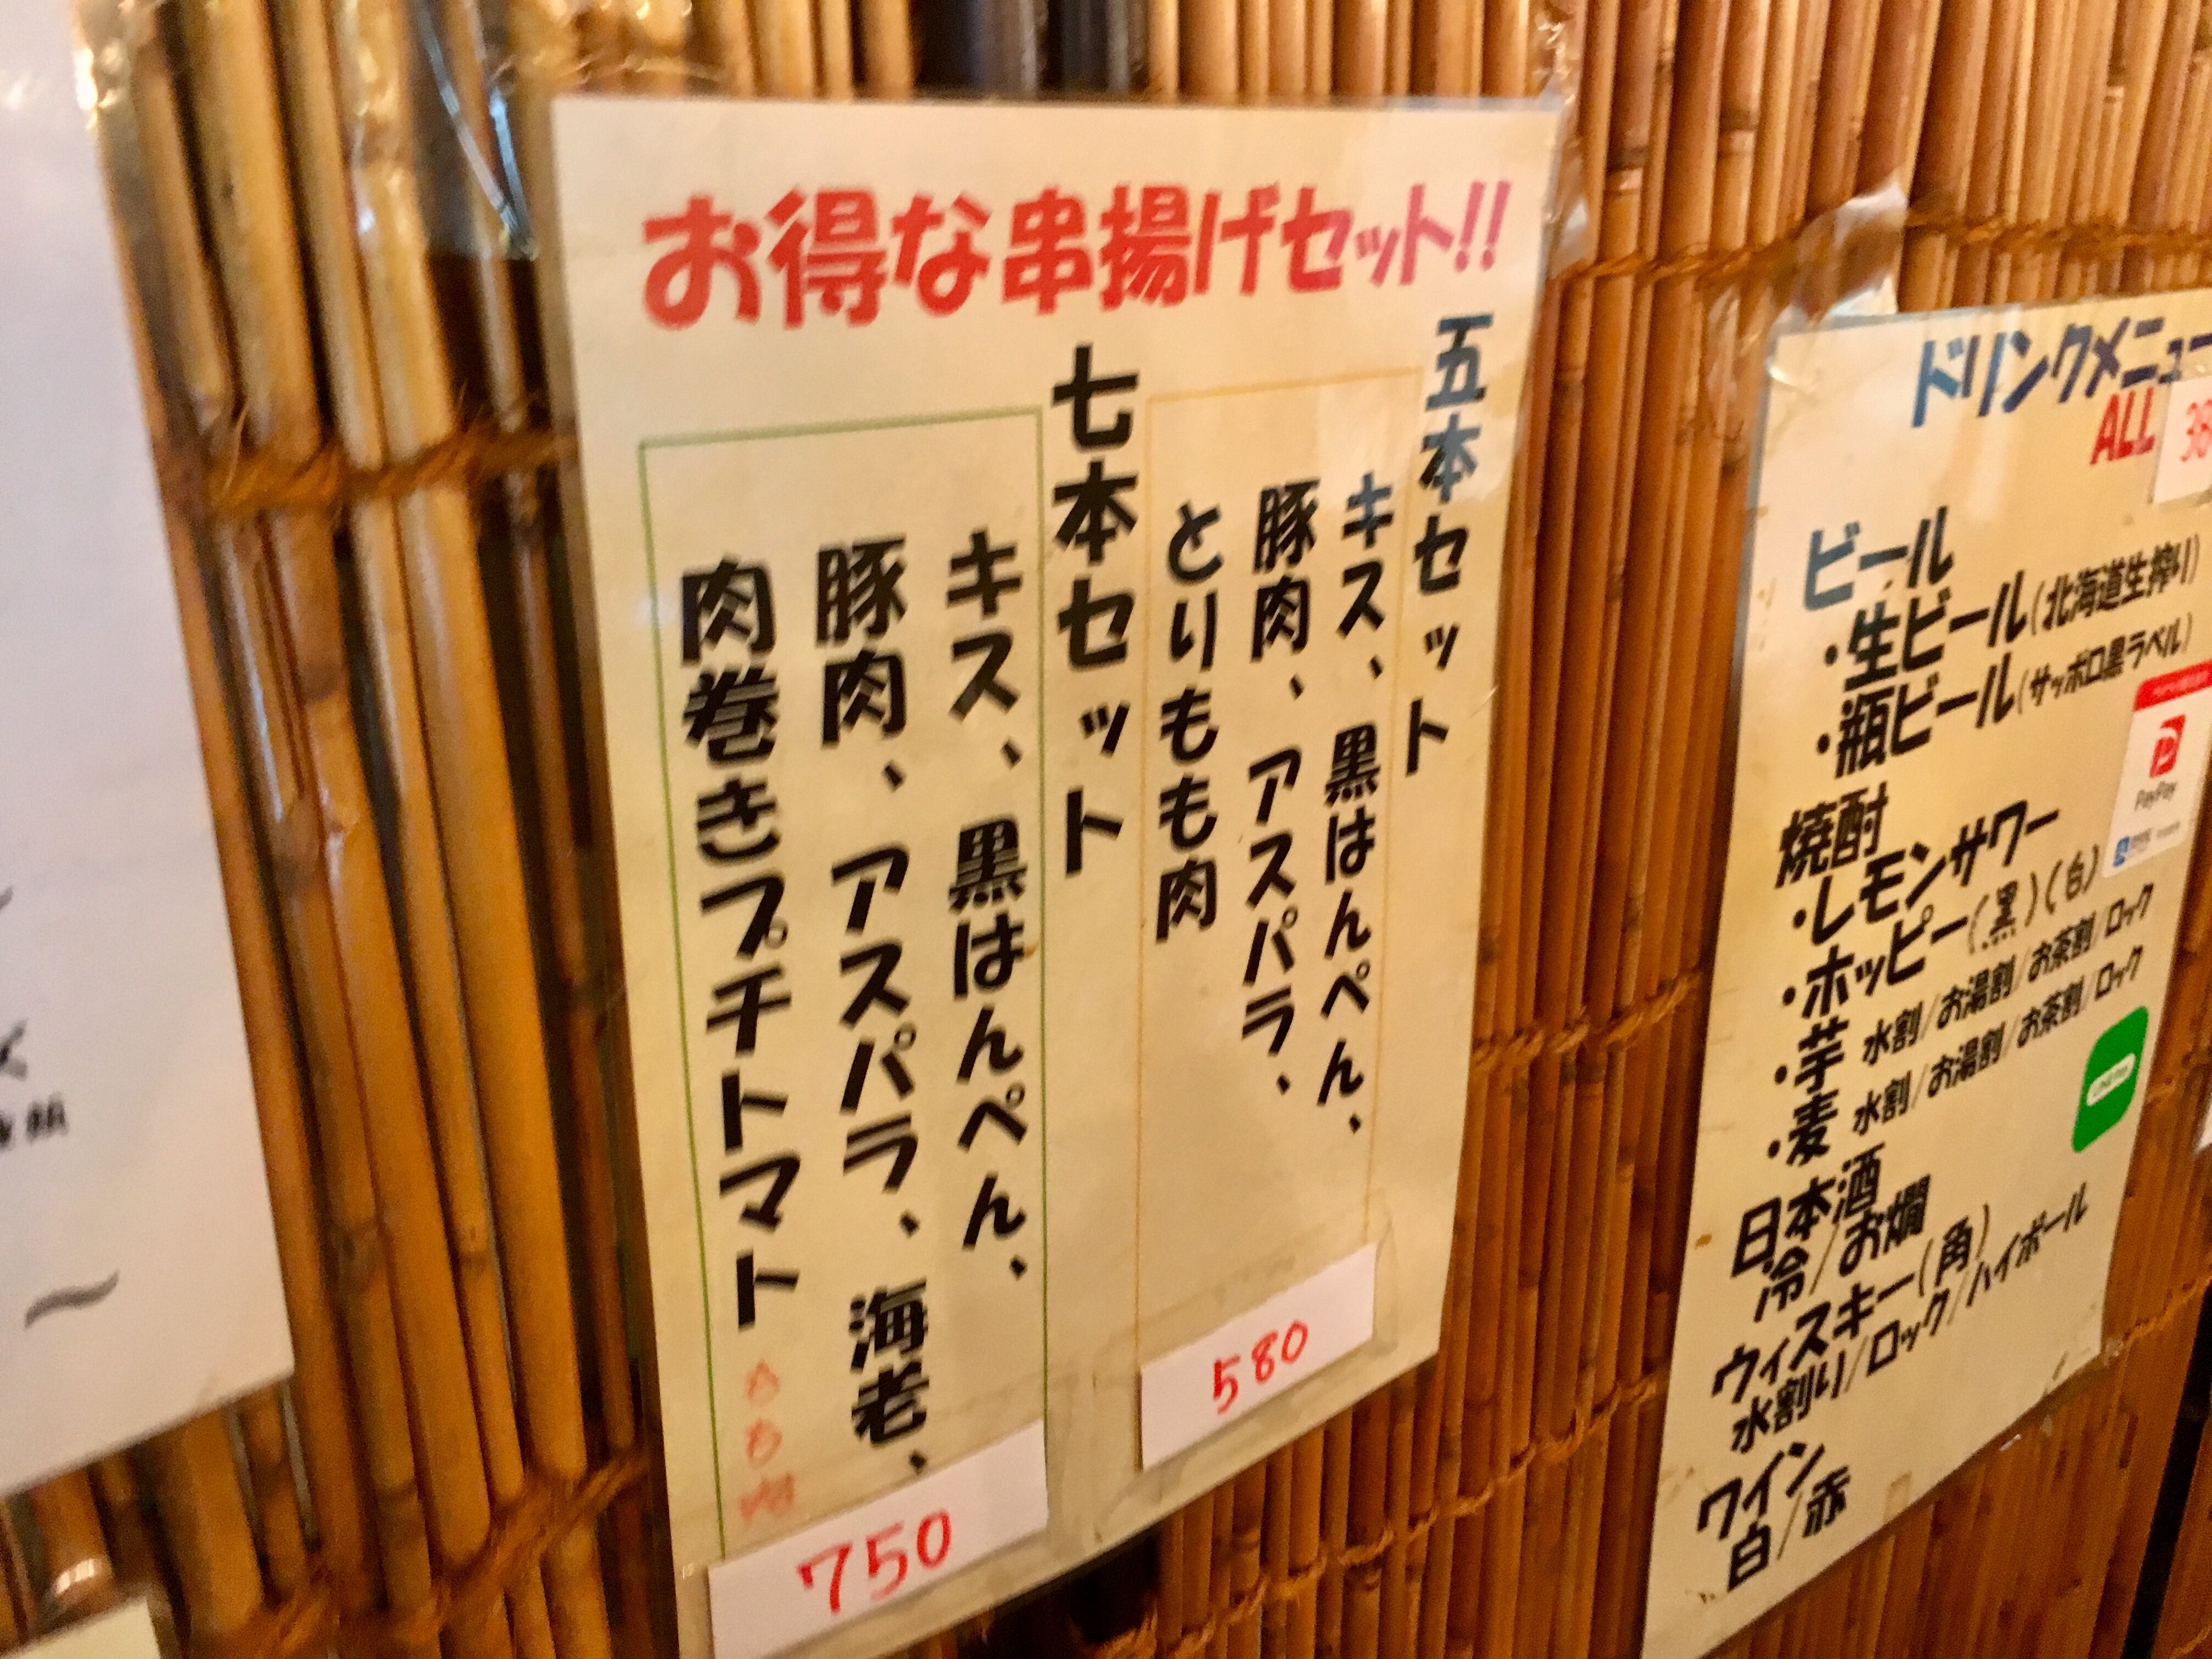 お得な串揚げセット!!
五本セット
キス、黒はんぺん、
豚肉、アスパラ、
とりもも肉
580
七本セット
キス、黒はんぺん、
豚肉、アスパラ、海老、
肉巻きプチトマト
もも肉
750
ドリンクメニュー
ALL 38
ビール
・生ビール(北海道生搾り)
・瓶ビール(サッポロ黒ラベル)
焼酎
・レモンサワー
・ホッピー(黒)(白)
・芋 水割/お湯割/お茶割/ロック
・麦 水割/お湯割/お茶割/ロック
日本酒
冷/お燗
ウィスキー(角)
水割り/ロック/ハイボール
ワイン
白/赤
PayPay